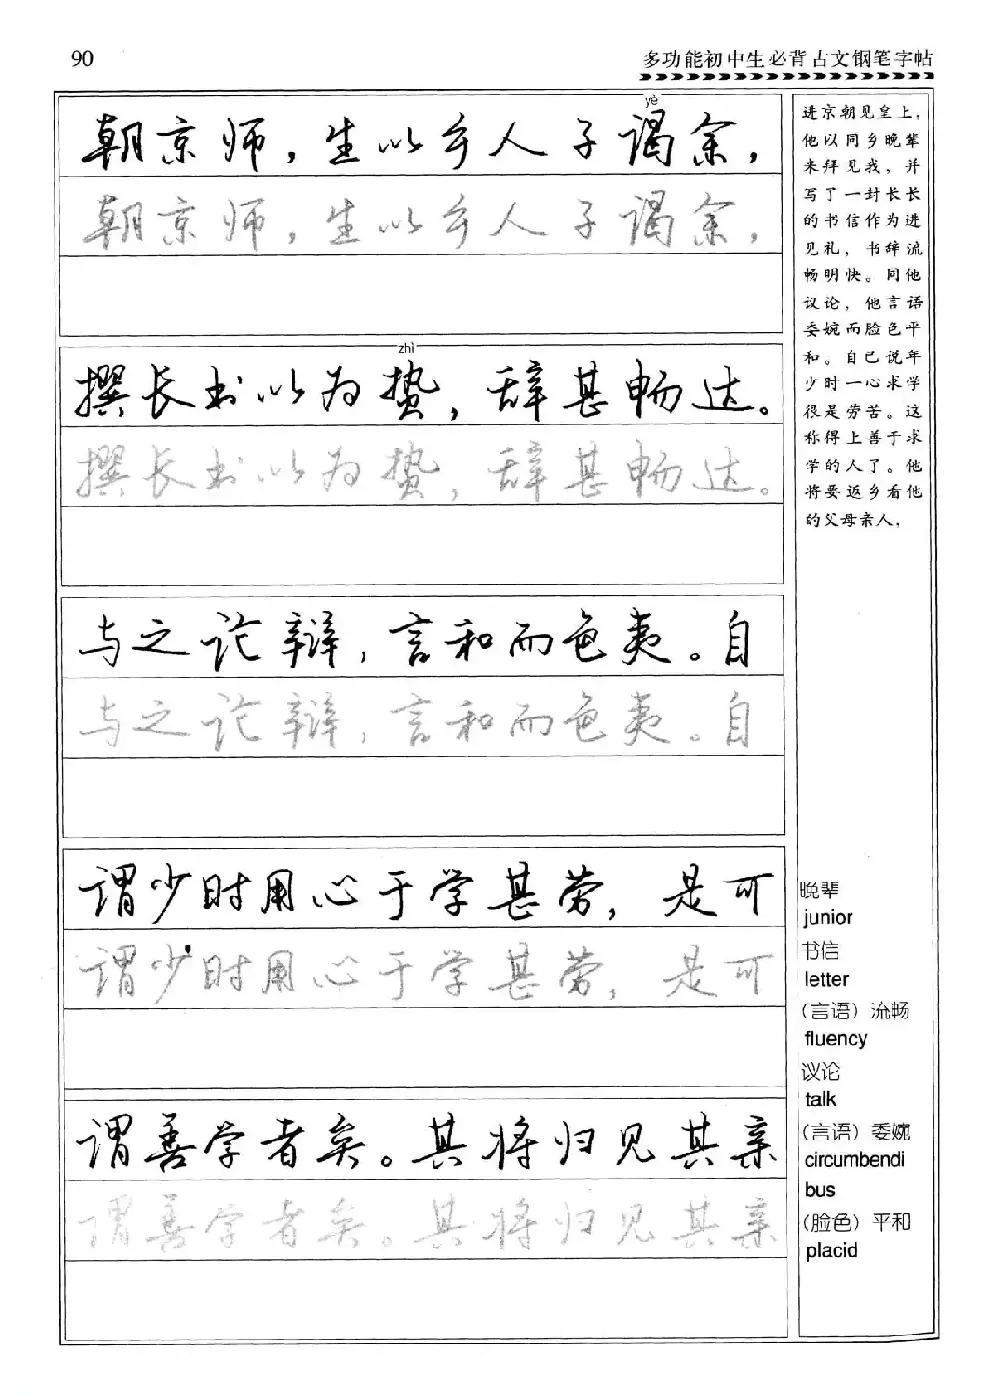 90
多功能初中生必背古文钢笔字帖
yè
朝京师，生以乡人子谒余，
朝京师，生以乡人子谒余，
zhì
撰长书以为贽，辞甚畅达。
撰长书以为贽，辞甚畅达。
与之论辩，言和而色夷。自
与之论辩，言和而色夷。自
谓少时用心于学甚劳，是可
谓少时用心于学甚劳，是可
谓善学者矣。其将归见其亲
谓善学者矣。其将归见其亲
进京朝见皇上，
他以同乡晚辈
来拜见我，并
写了一封长长
的书信作为进
见礼，书辞流
畅明快。同他
议论，他言语
委婉而脸色平
和。自己说年
少时一心求学
很是劳苦。这
称得上善于求
学的人了。他
将要返乡看他
的父母亲人，
晚辈
junior
书信
letter
（言语）流畅
fluency
议论
talk
（言语）委婉
circumbendi
bus
（脸色）平和
placid